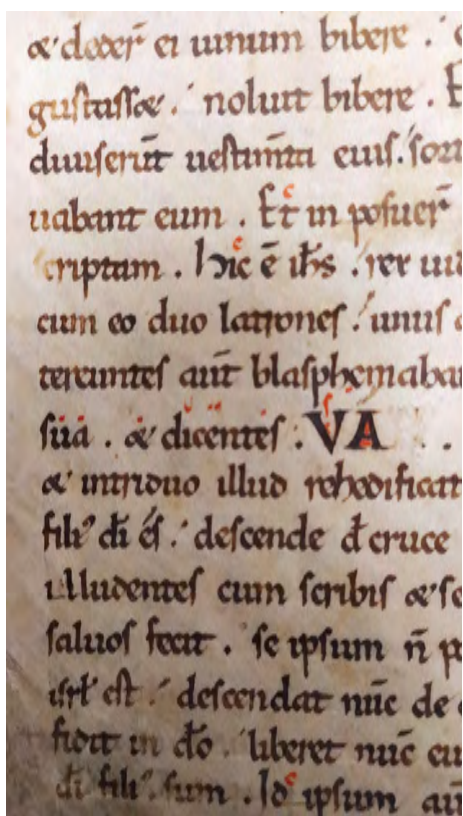 & deder̄ ei uinum bibere .
gustass& . noluit bibere . E
diuiserūt uestim̄ta eius . sor
uabant eum . Et in posuer̄
criptam . hic ē ih̄s . rex iu
cum eo duo latrones . unus
tereuntes aūt blasphemaba
suā . & dicentes : VA . .
& intriduo illud rehedificat
fili' di es . descende d cruce
illudentes cum scribis & se
saluos fecit . se ipsum n̄ p
isrl' est . descendat nūc de
fidit in dō . liberet nūc eu
di fili' sum . Id ipsum aū